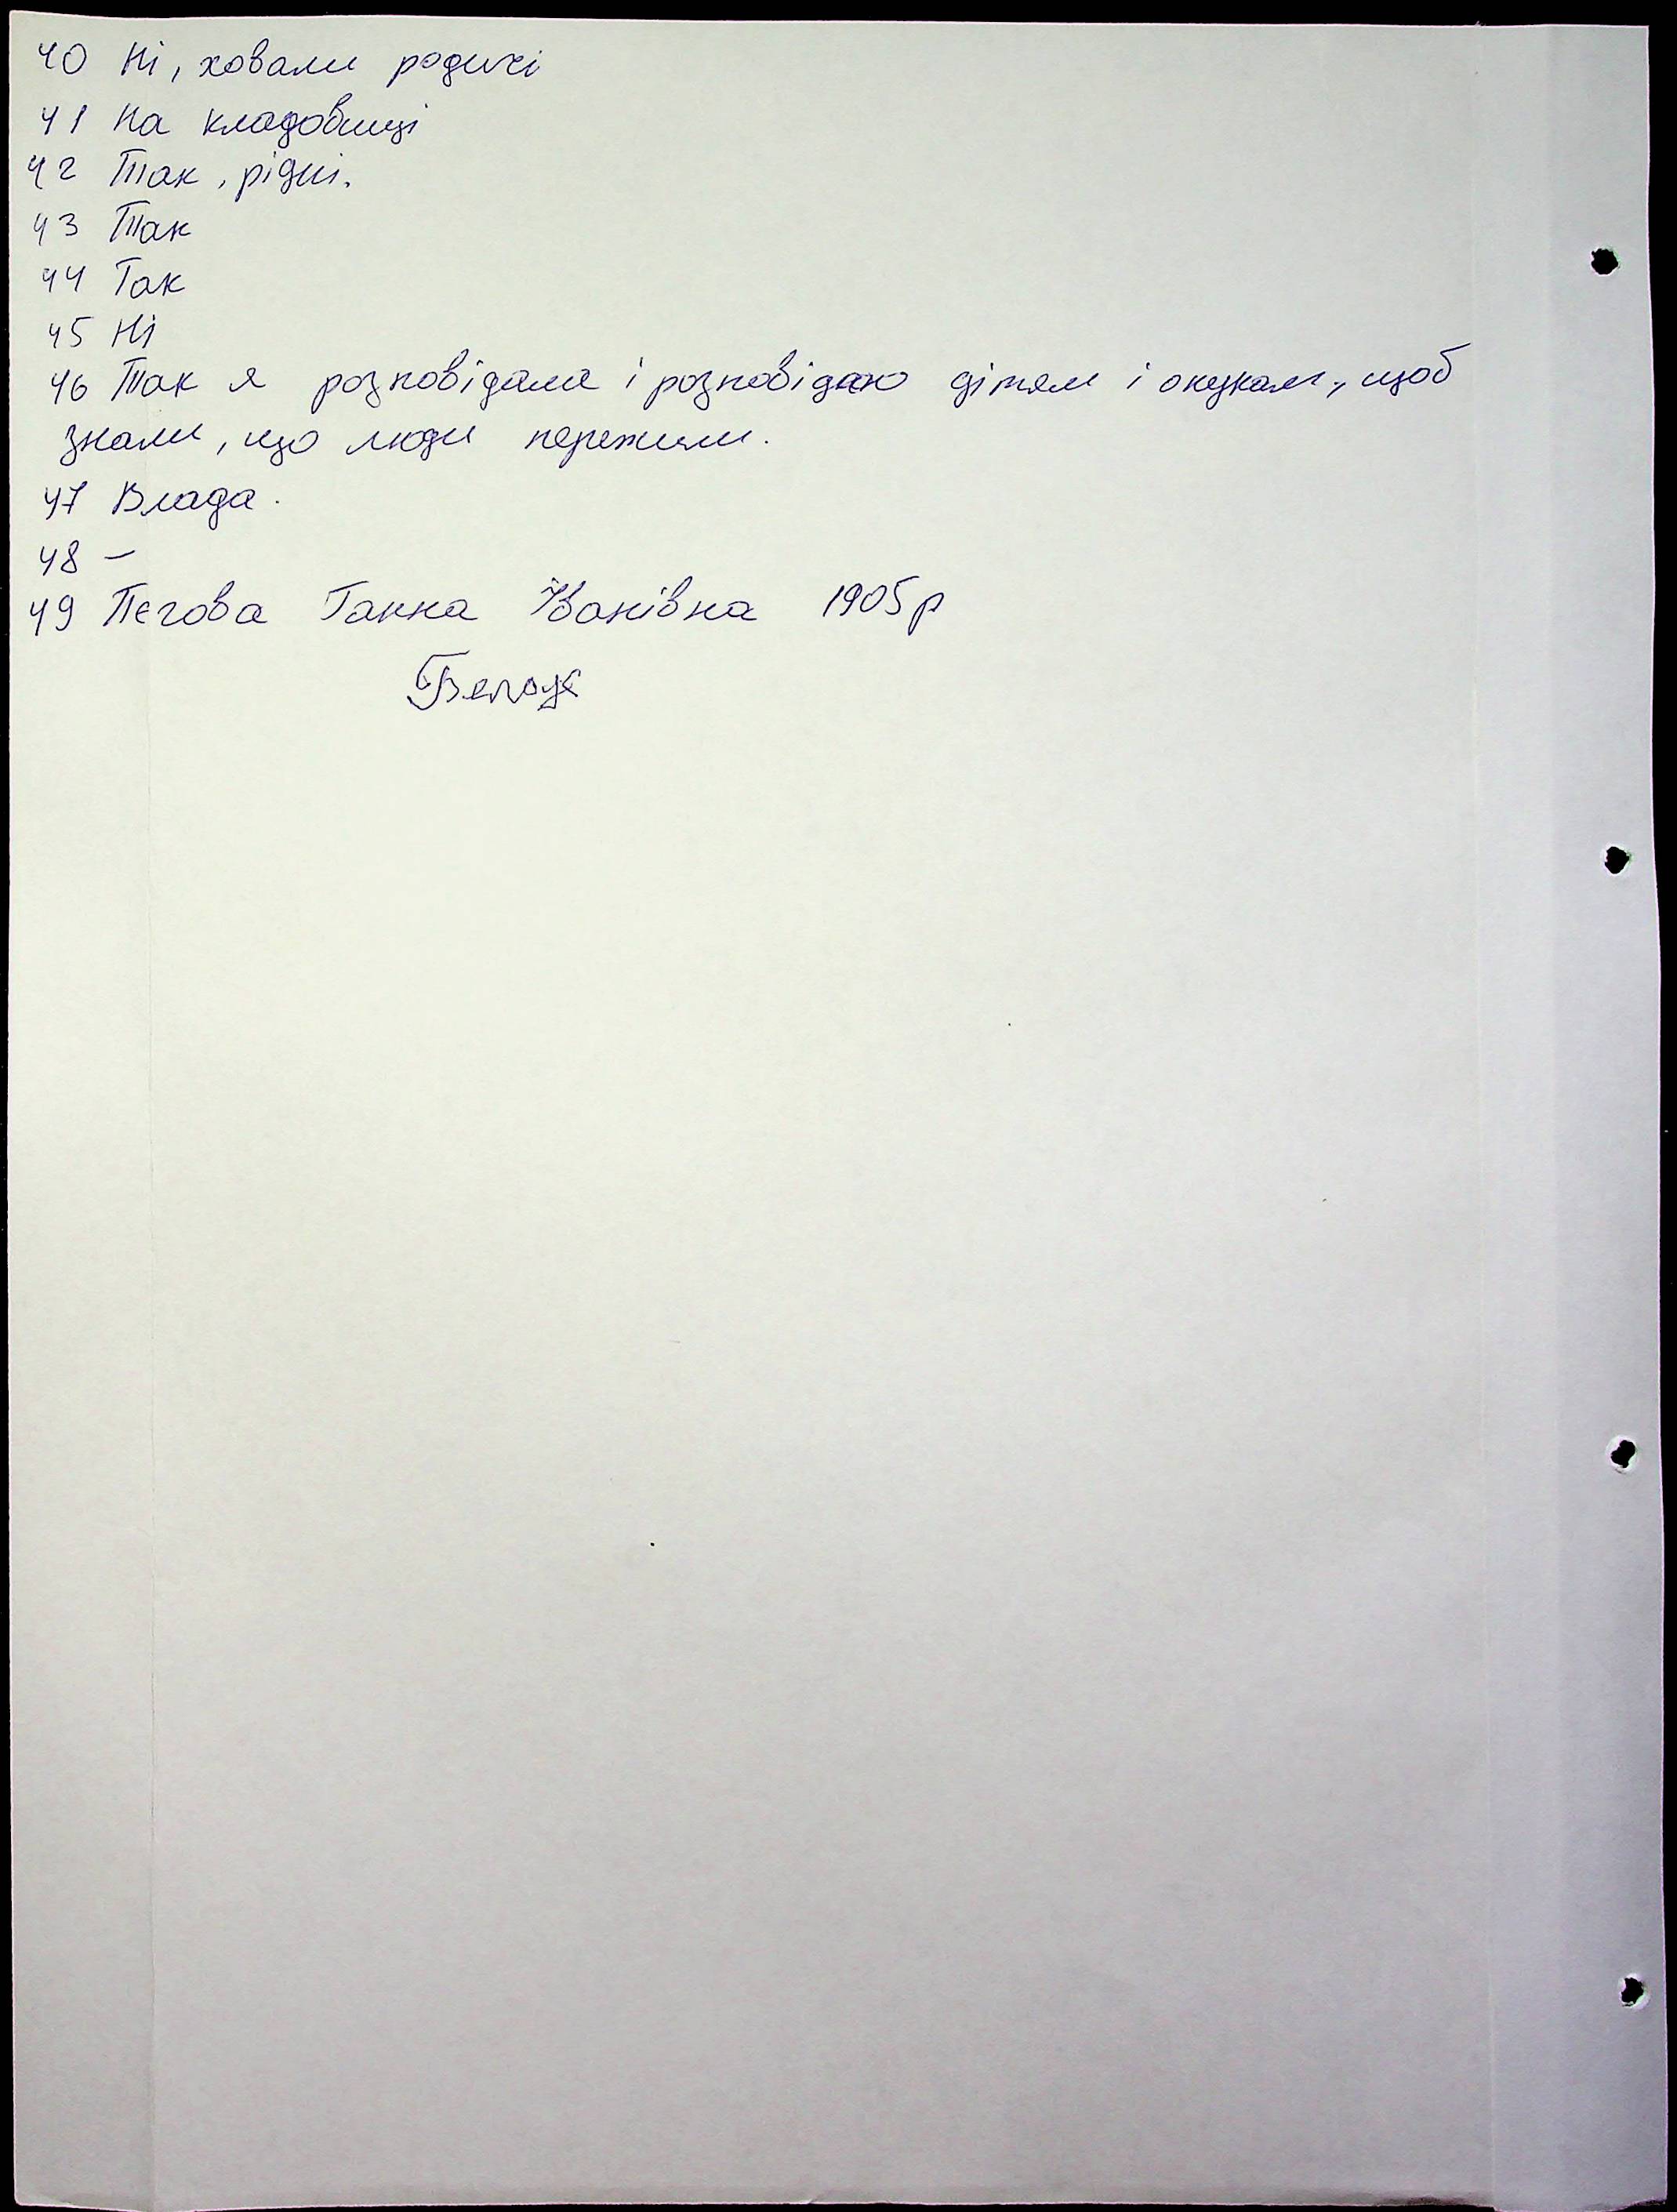 40 Ні, ховали родичі
41 На кладовищі
42 Так, рідні.
43 Так
44 Так
45 Ні
46 Так я розповідала і розповідаю дітям і онукам, щоб
знали, що люди пережили.
47 Влада.
48 –
49 Пєгова Ганна Іванівна 1905р